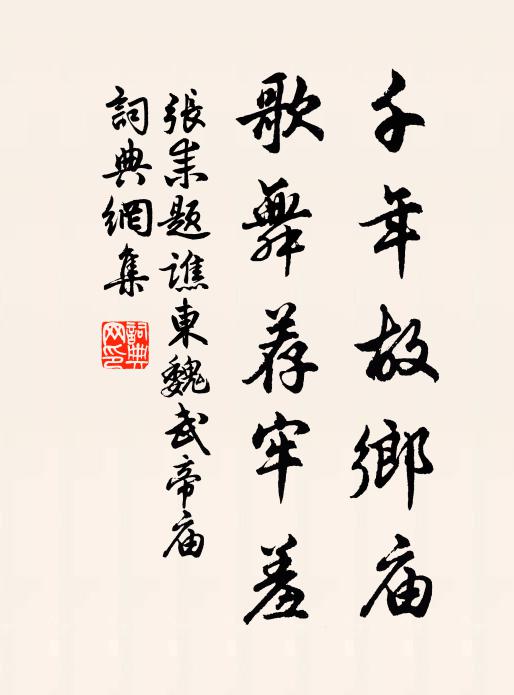 千年故鄉庙
歌舞荐牢羞
張耒題譙東魏武帝庙
詞典網集
詞典网印